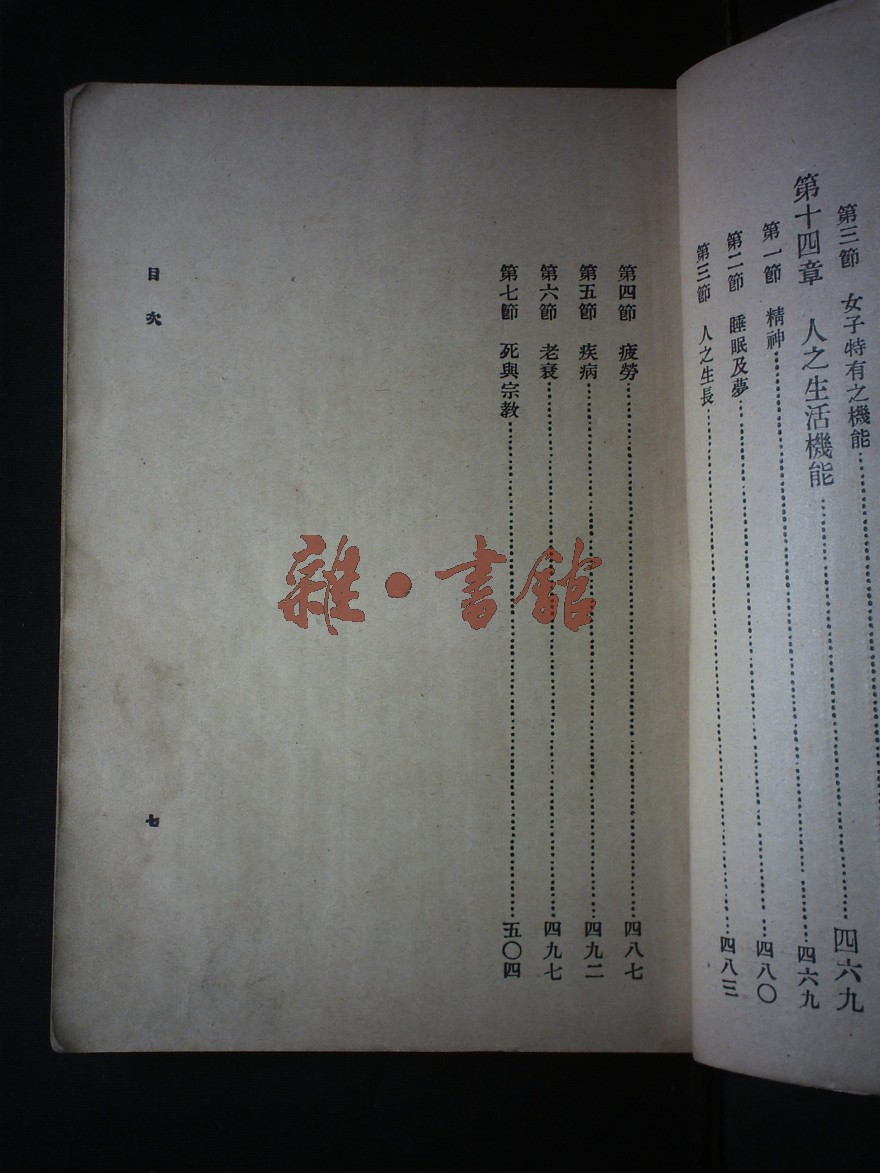 第三節　女子特有之機能
第十四章　人之生活機能…四六九
第一節　精神…四六九
第二節　睡眠及夢…四八〇
第三節　人之生長…四八三
第四節　疲勞…四八七
第五節　疾病…四九二
第六節　老衰…四九七
第七節　死與宗教…五〇四
目次
七
雜•書館